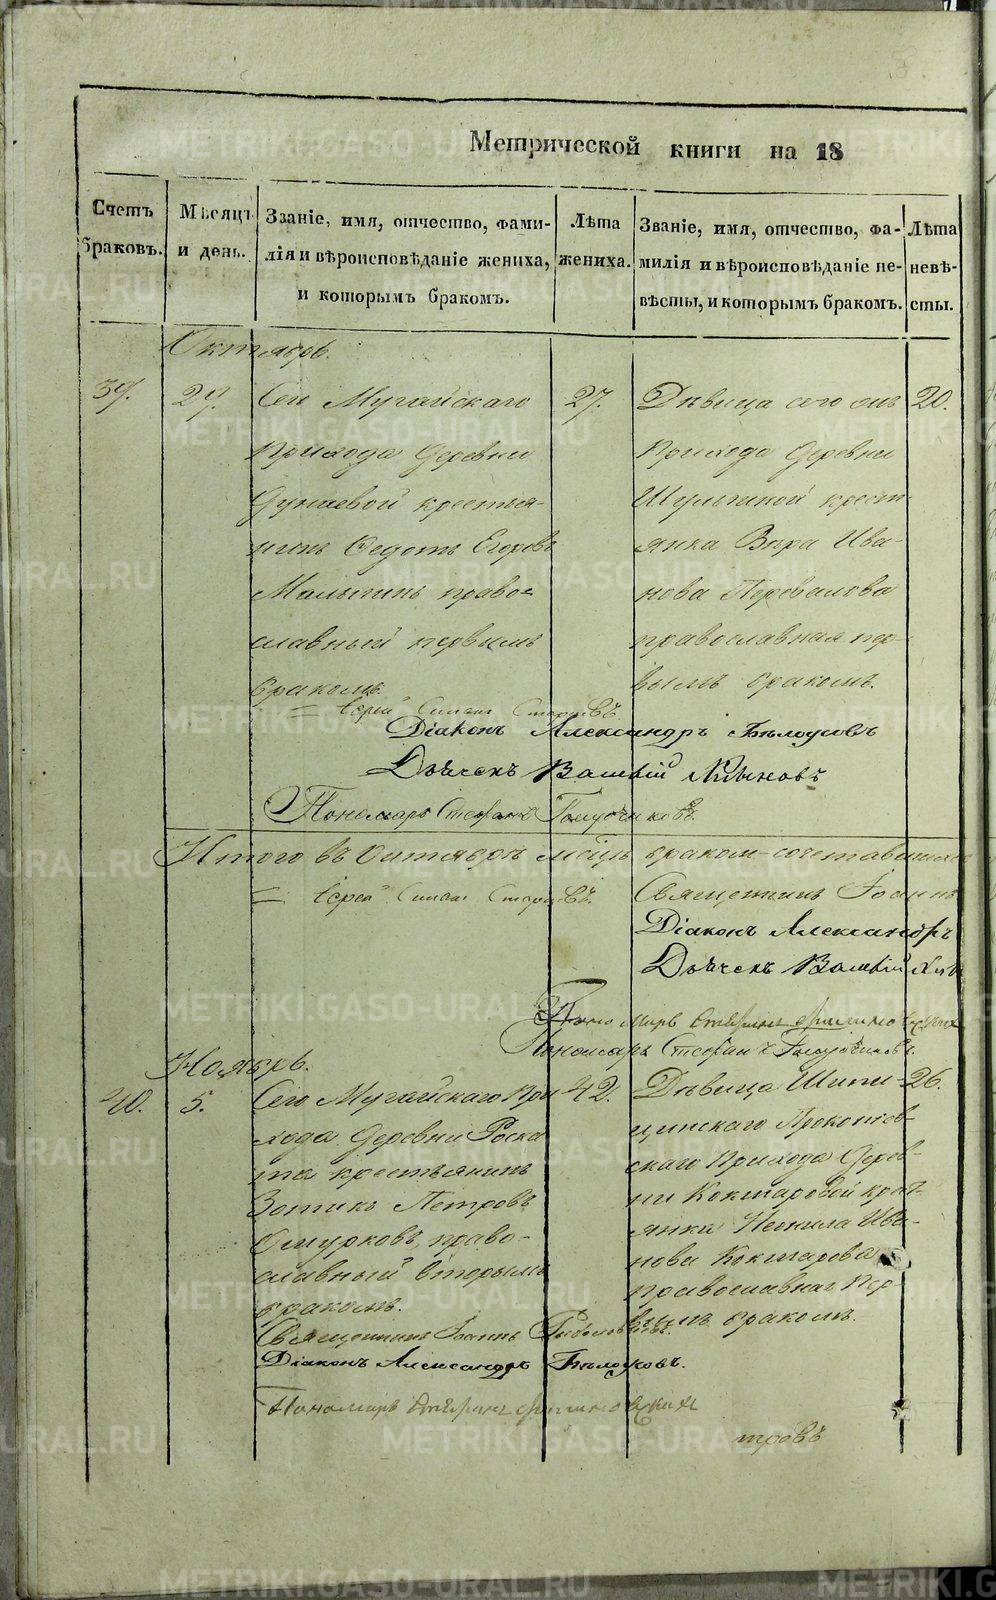 Метрической книги на 18
Счетъ браковъ.
Мѣсяцъ и день.
Званіе, имя, отчество, фами-
лія и вѣроисповѣданіе жениха,
и которымъ бракомъ.
Лѣта
жениха.
Званіе, имя, отчество, фа-
милія и вѣроисповѣданіе не-
вѣсты, и которымъ бракомъ.
Лѣта
невѣ-
сты.
Октябрь.
39.
27.
Сего Мугайскаго
прихода деревни
Дунаевой крестья-
нинъ Федотъ Егоровъ
Малыгинъ право=
славный первымъ
бракомъ.
27.
Дѣвица сего
прихода деревни
Шулыгиной крест-
янка Вѣра Ива-
нова Перевалова
православная пер-
вымъ бракомъ.
20.
= Іерей Симеон
Діаконъ Александръ Бѣлоусовъ
Дьячекъ
Пономарь Стефанъ
Итого въ Октябрѣ мѣцѣ бракомъ сочетавшихся
= Іерей Симеон
Священникъ Іоаннъ
Діаконъ Александръ
Дьячекъ
Пономарь
Пономарь Стефанъ
Ноябрь.
40.
5.
Сего Мугайскаго при
хода деревни Роска
та крестьянинъ
Зотикъ Петровъ
Ошурковъ, право-
славный вторымъ
бракомъ.
42.
Дѣвица Шипи-
цинскаго Прокопьев-
скаго прихода дерев-
ни Кокшаровой крест-
янка Неонила Ива-
нова Кокшарова
православная пер
вымъ бракомъ.
26.
Священникъ Іоаннъ
Діаконъ Александръ Бѣлоусовъ.
Пономарь
тровъ
METRIKI.GASO-URAL.RU